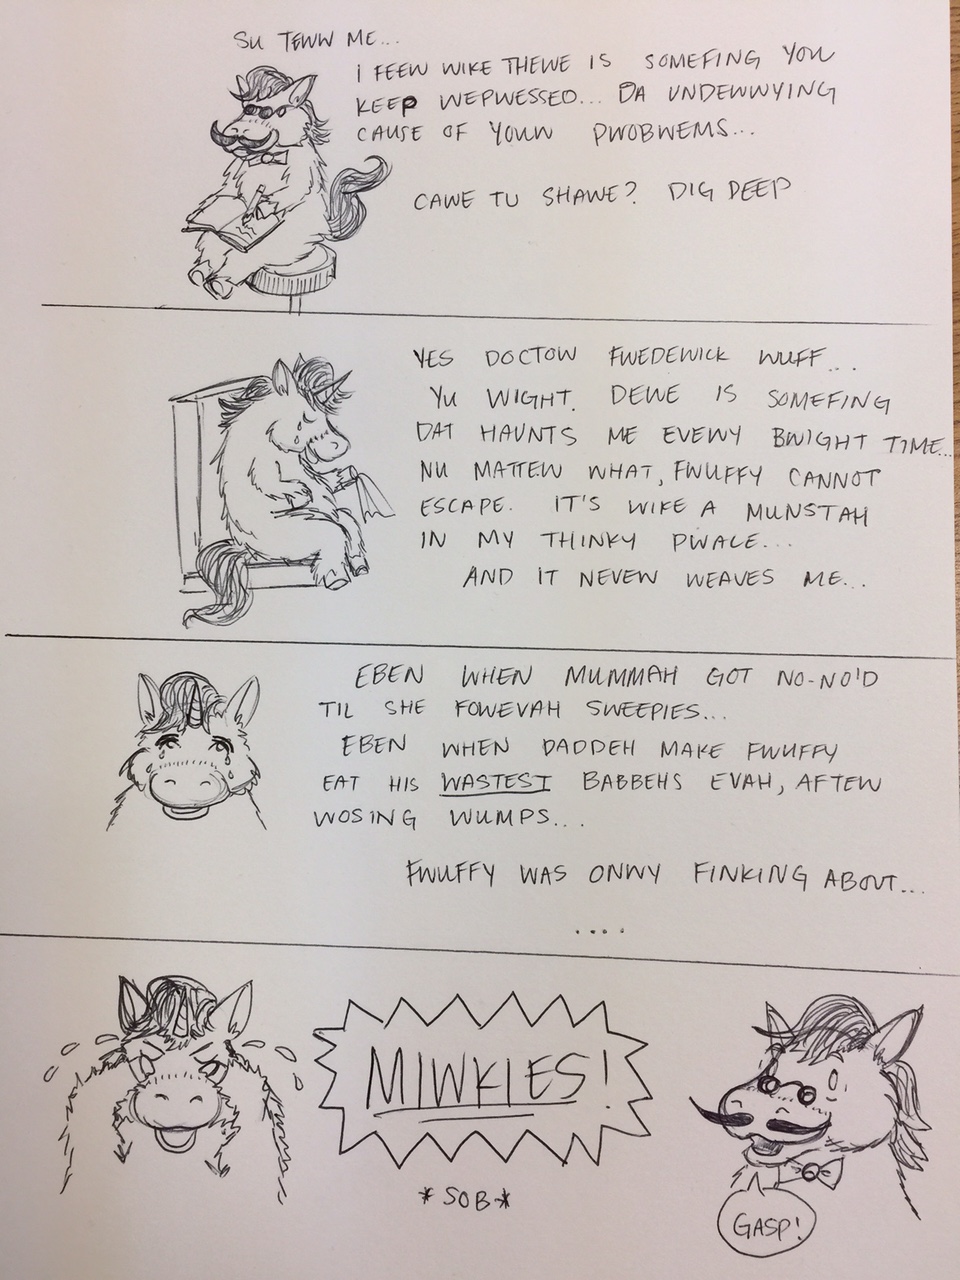 SU TEWW ME...
I FEEW WIKE THEWE IS SOMEFING YOU
KEEP WEPWESSED... DA UNDEWWYING
CAUSE OF YOUW PWOBWEMS...
CAWE TU SHAWE? DIG DEEP
YES DOCTOW FWEDEWICK WUFF...
YU WIGHT. DEWE IS SOMEFING
DAT HAUNTS ME EVEWY BWIGHT TIME...
NU MATTEW WHAT, FWUFFY CANNOT
ESCAPE. IT'S WIKE A MUNSTAH
IN MY THINKY PWACE...
AND IT NEVEW WEAVES ME...
EBEN WHEN MUMMAH GOT NO-NO'D
TIL SHE FOWEVAH SWEEPIES...
EBEN WHEN DADDEH MAKE FWUFFY
EAT HIS WASTEST BABBEHS EVAH, AFTEW
WOSING WUMPS...
FWUFFY WAS ONWY FINKING ABOUT...
....
MIWKIES!
*SOB*
GASP!